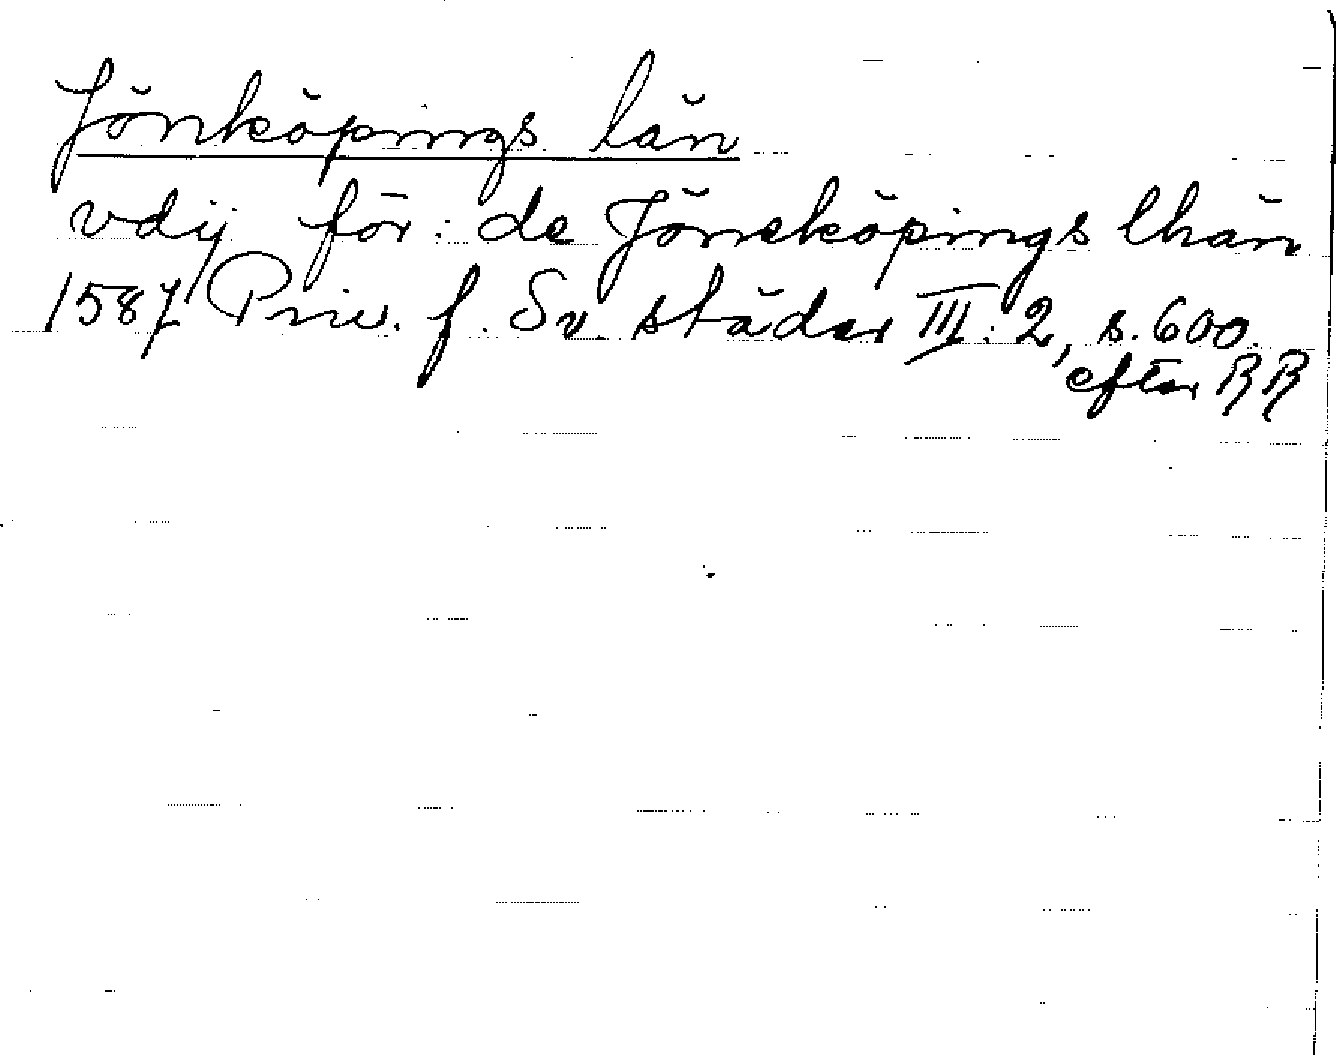 Jönköpings län
vdij för: de Jöneköpings lhän
1587 Priv. f. Sv. städer III: 2, s. 600.
efter RR